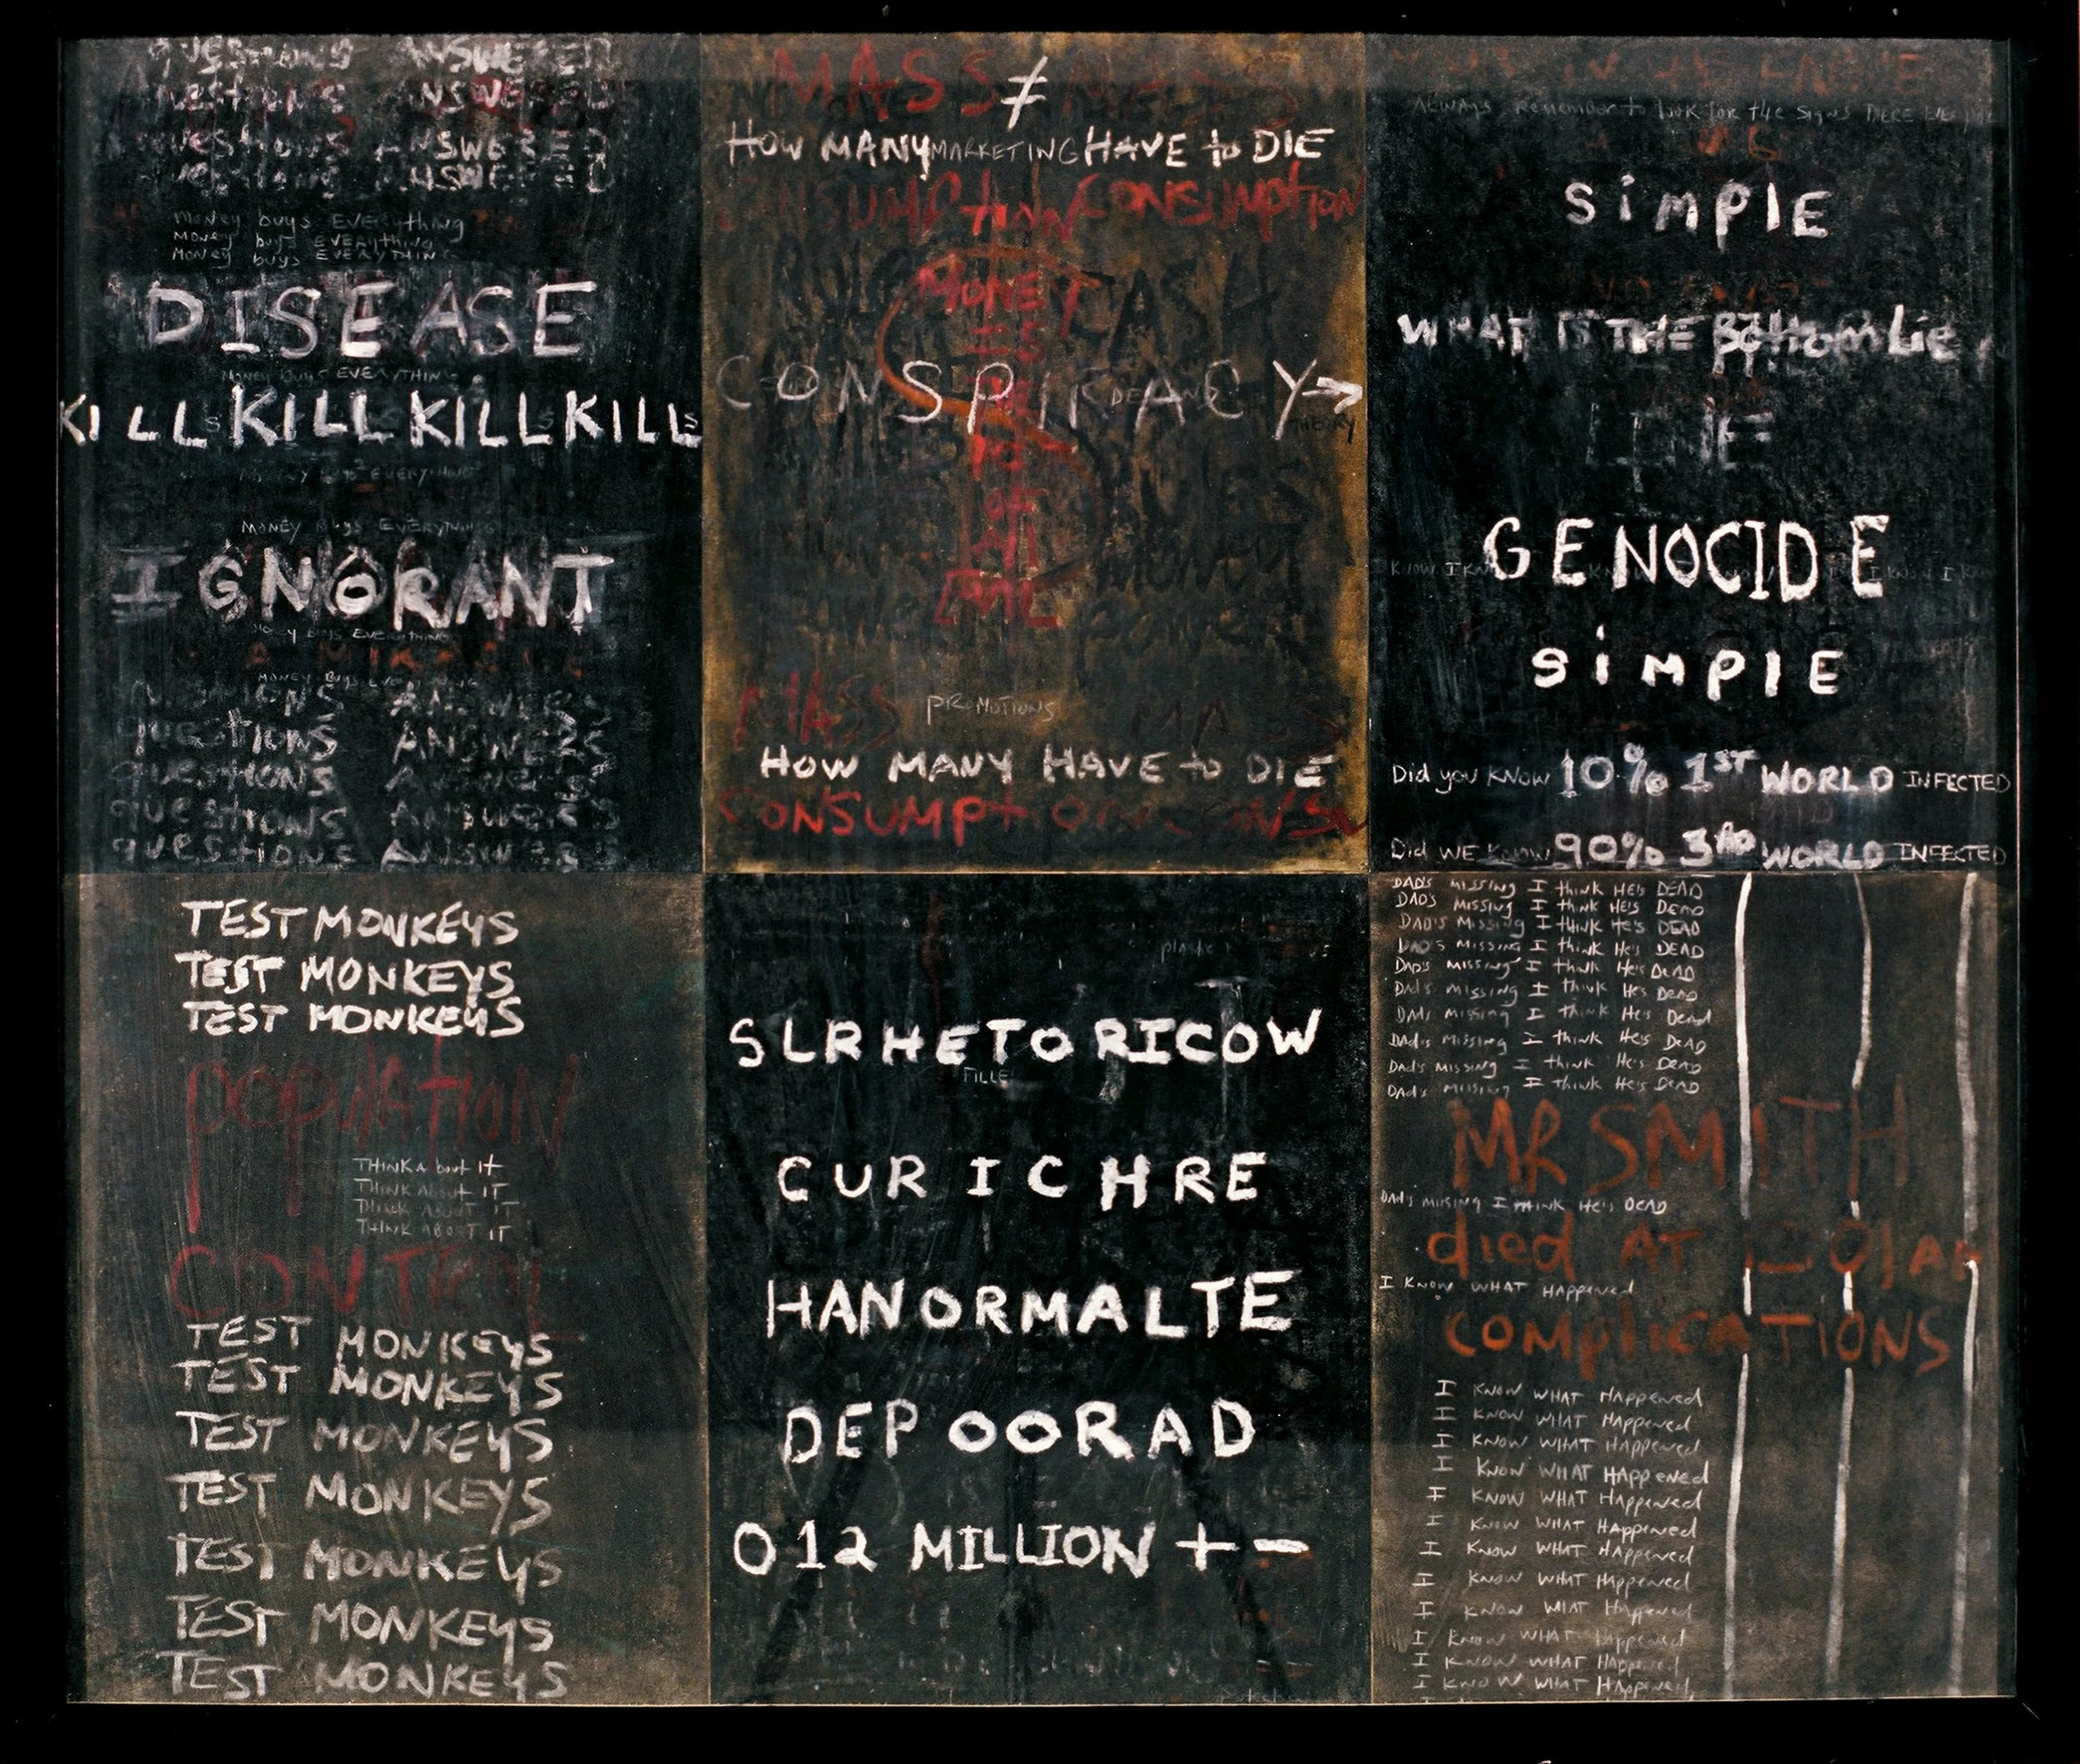 questions ANSWERED
questions ANSWERED
questions ANSWERED
questions ANSWERED
Money buys EVERything
Money buys EVERything
Money buys EVERYTHING
DISEASE
Money buys EVERYTHING
KILLS KILL KILL KILLS
Money buys EVERYTHING
MONEY Buys EVERYTHING
IGNORANT
Money buys EVERYTHING
MONEY Buys EVERYTHING
questIONS ANSWERS
questIONS ANSWERS
questIONS ANSWERS
questIONS ANSWERS
questIONS ANSWERS
MASS ≠
HOW MANY MARKETING HAVE to DIE
CONSUMPtION CONSUMptION
MONEY CASH
IS
CONSPIRACY→
THEORY
OF
EVIL
MONEY
power power
MASS PROMOTIONS MASS
HOW MANY HAVE to DIE
CONSUMptION CONSU
ALWAYS Remember to look for tHe Signs THERE
SiMPlE
WHAT IS THE Bottom Lie
LINE
GENOCIDE
KNOW I KNOW I KNOW I
SiMPlE
Did you KNOW 10% 1ST WORLD INFECTED
Did WE KNOW 90% 3RD WORLD INFECTED
TEST MONKEYS
TEST MONKEYS
TEST MONKEYS
popULATION
THINK About It
THINK About IT
THINK ABOUT IT
THINK ABOUT IT
CONTROL
TEST MONKEYS
TEST MONKEYS
TEST MONKEYS
TEST MONKEYS
TEST MONKEYS
TEST MONKEYS
TEST MONKEYS
SLRHETORICOW
FILLE
CURICHRE
HANORMALTE
DEPOORAD
012 MILLION + -
DAD'S MISSING I think HE'S DEAD
DAD'S MISSING I think HE'S DEAD
DAD'S MISSING I think He's DEAD
DAD'S MISSING I think He's DEAD
DAD'S MISSING I think He's DEAD
Dad's MISSING I think He's DEAD
DAD's MISSING I think He's Dead
DAd's Missing I think He's DEAD
DAd's MISSING I think He's DEAD
Dad's MISSING I think He's DEAD
MR SMITH
DAd's missing I think He's DEAD
died AT 12 01 AM
I KNOW WHAT HAPPened
COMplICATIONS
I KNOW WHAT HAppened
I KNOW WHAT HAppened
I KNOW WHAT HAppened
I KNOW WHAT HAppened
I KNOW WHAT HAppened
I KNOW WHAT HAppened
I KNOW WHAT HAppened
I KNOW WHAT HAppened
I KNOW WHAT HAppened
I KNOW WHAT HAppened
I KNOW WHAT HAppened
I KNOW WHAT HAppened